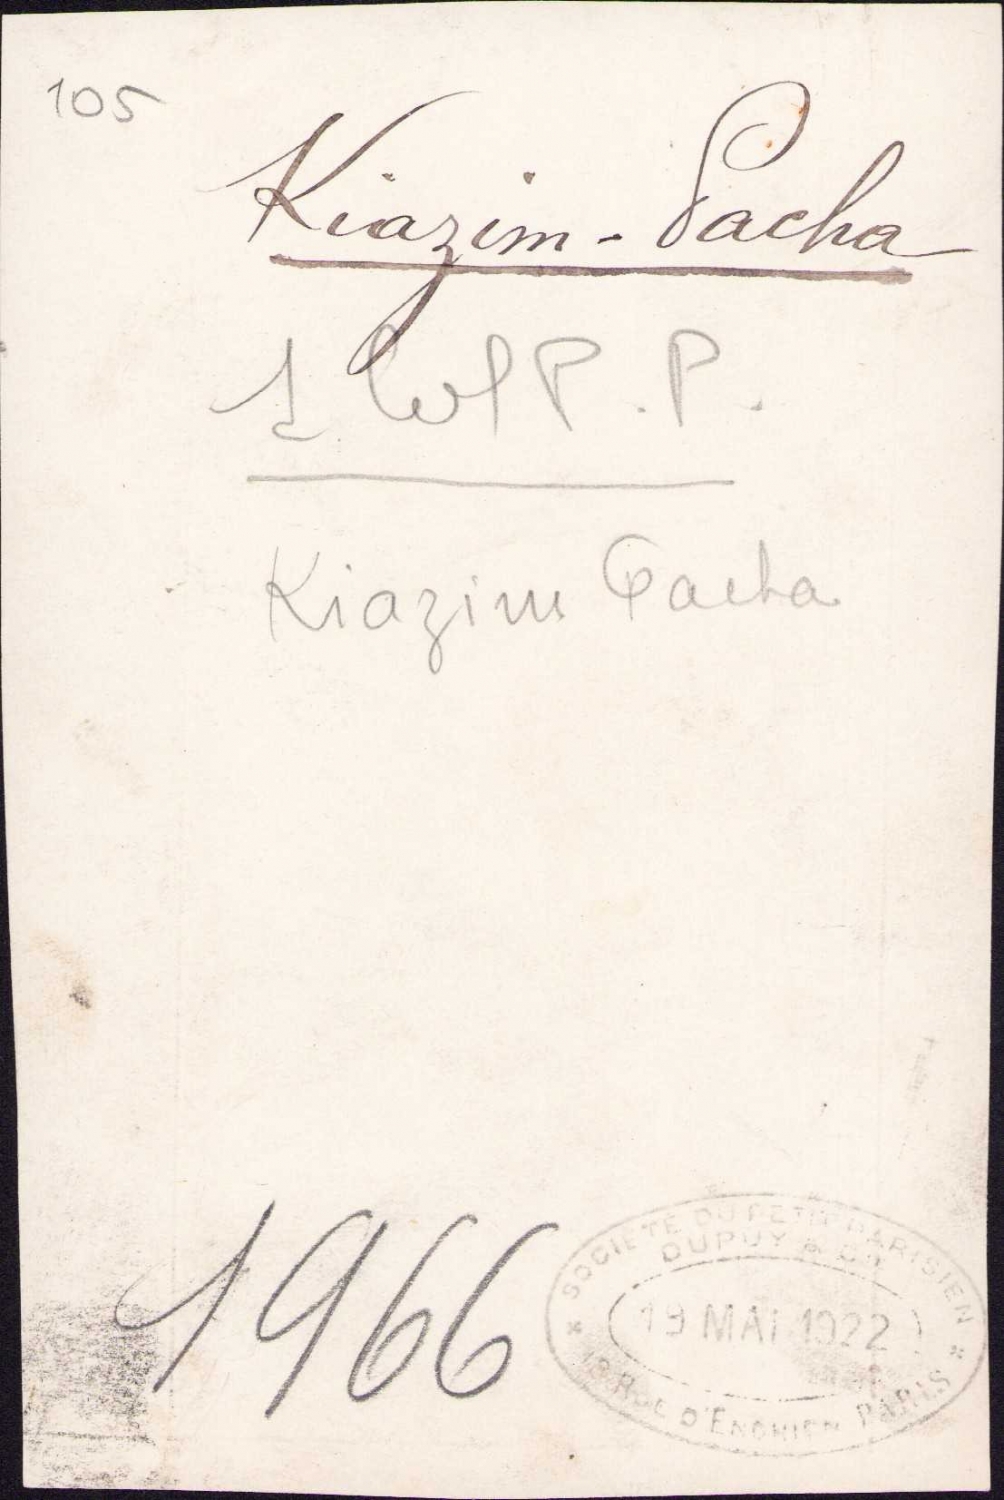 105
Kiazim-Pacha
1 Col P.P.
Kiazim Pacha
1966
SOCIÉTÉ DU PETIT PARISIEN
DUPUY & Cie
19 MAI 1922
18 RUE D'ENGHIEN PARIS